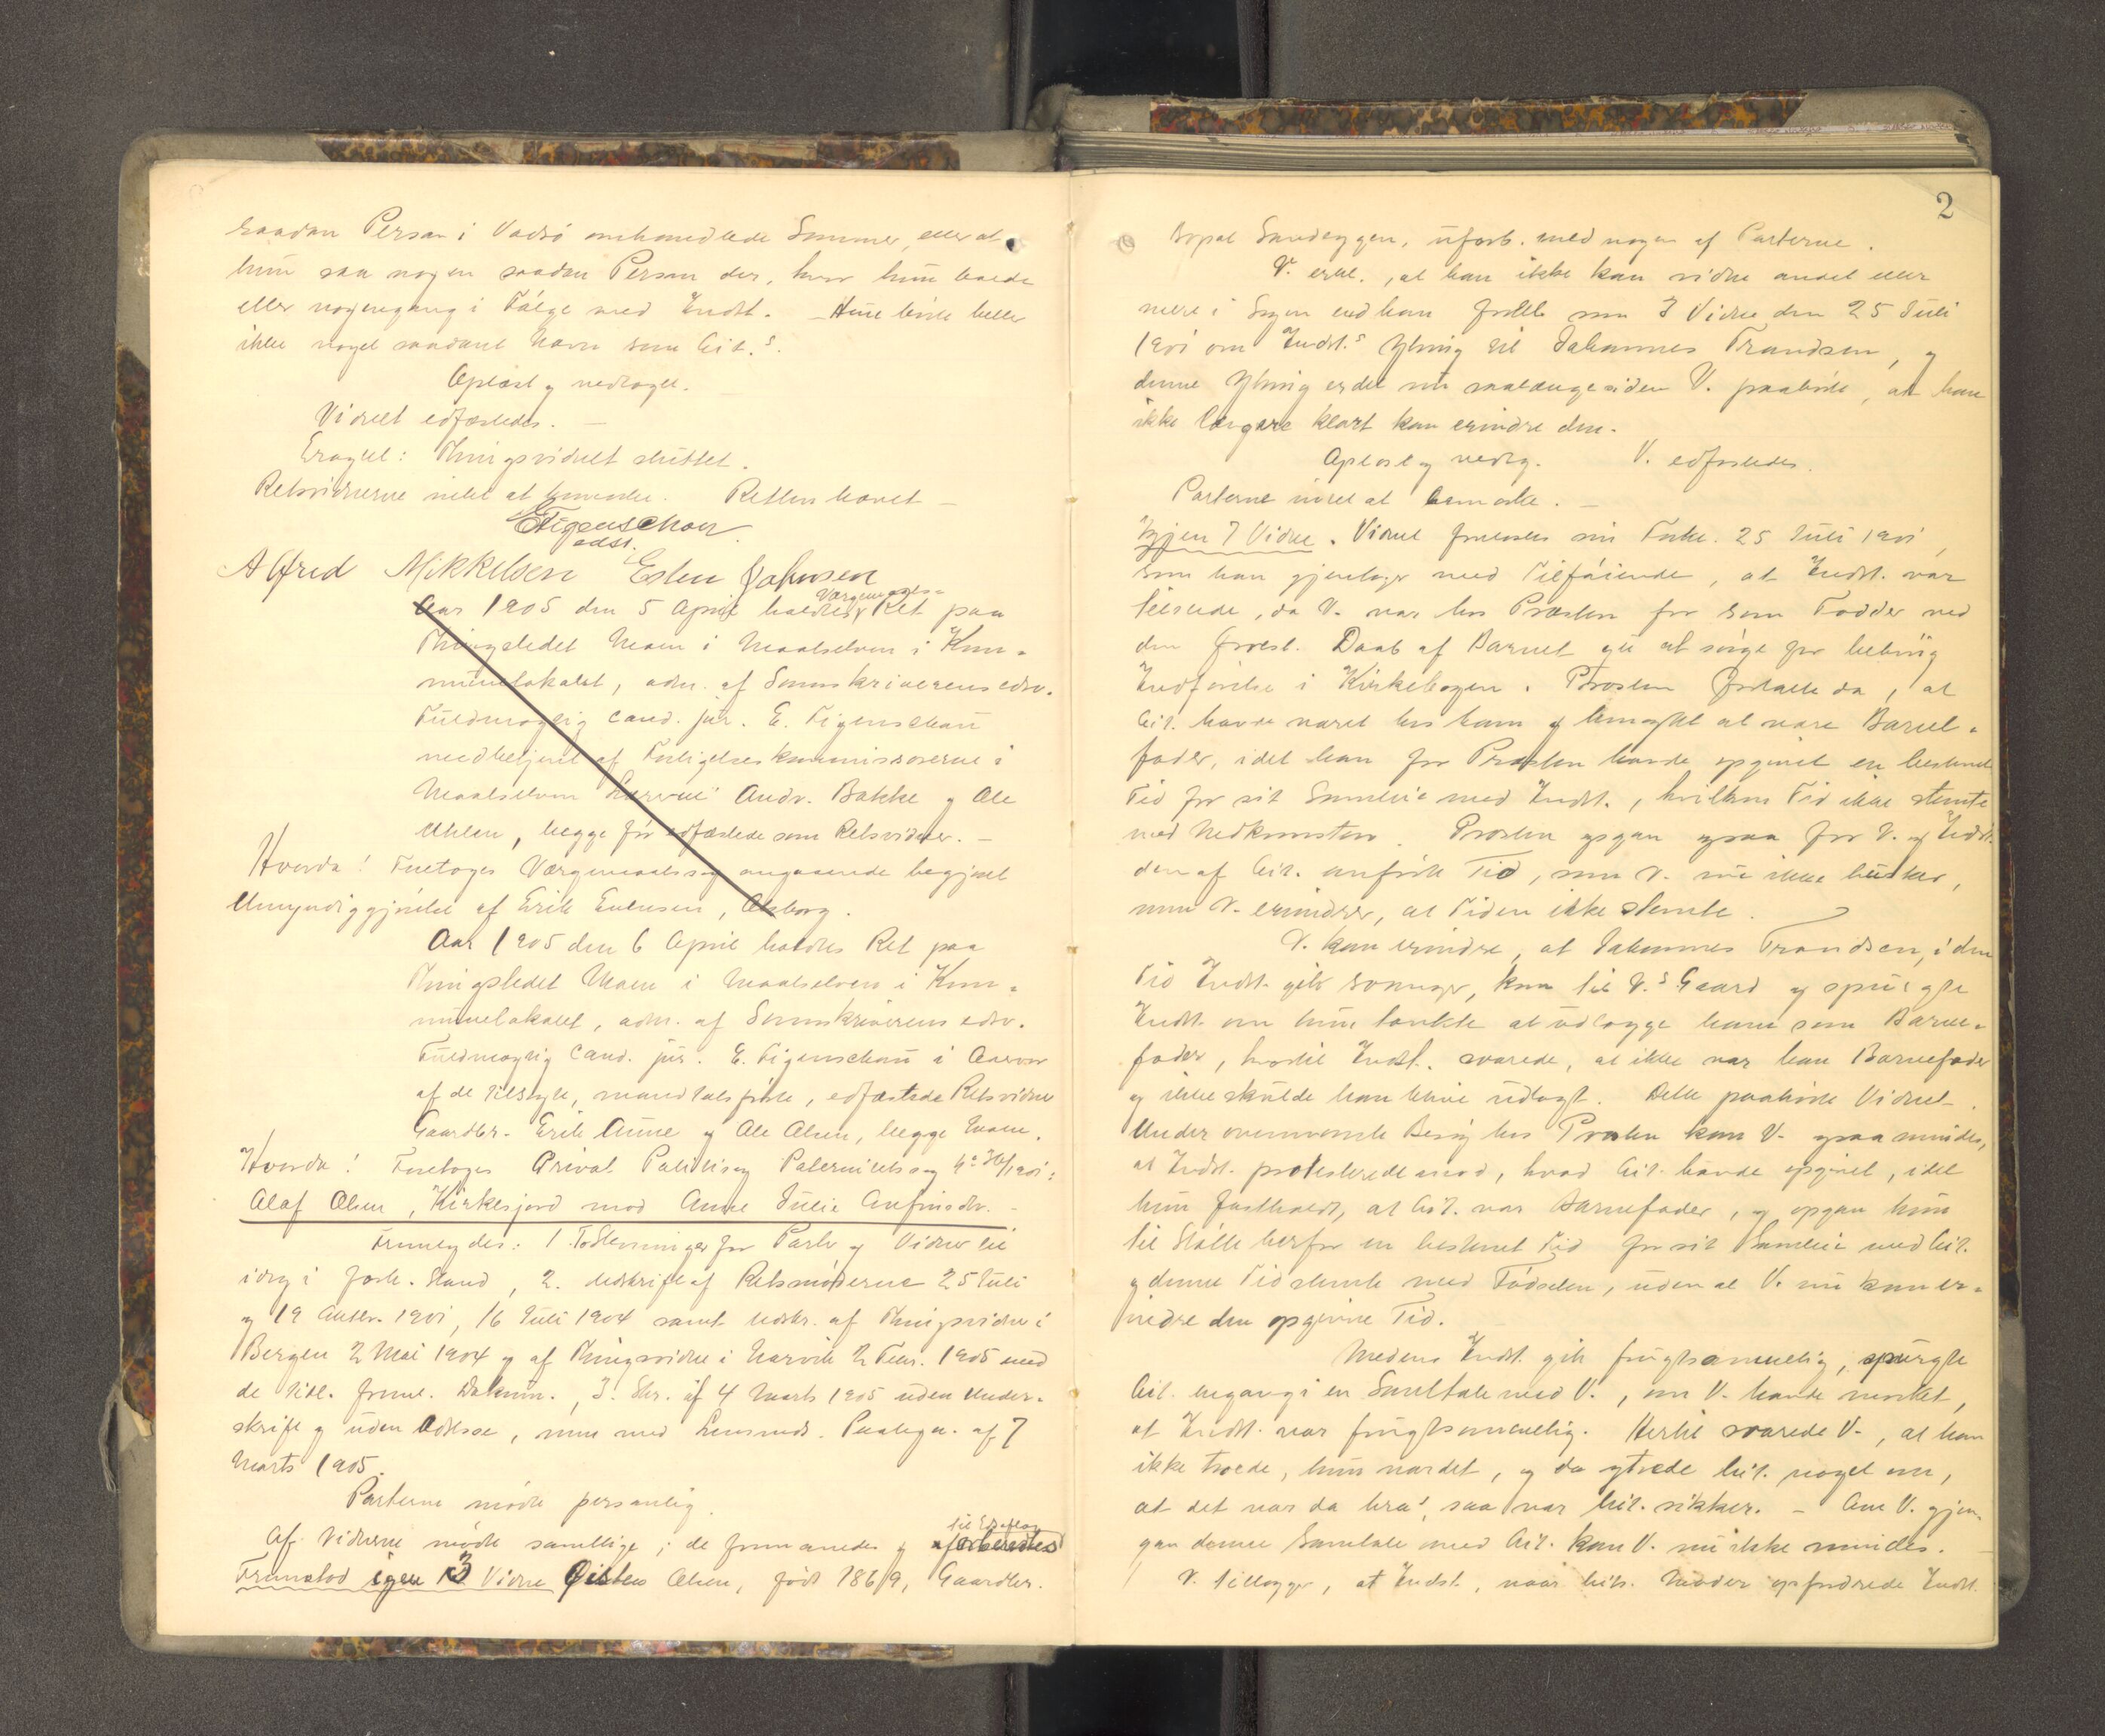 saadan Person i Vadsö omhandlede Sommer, eller at
hun saa nogen saadan Person der, hvor hun boede
eller nogengang i Fölge med Indst. – Hun kjendte heller
ikke noget saadant Navn som Cit.s.
Oplæst og vedtaget.
Vidnet edfæstedes. –
Eragtet: Thingsvidnet sluttet.
Retsvidnerne intet at bemerke. Retten hævet –
E Figenschou
edsv.
Alfred Mikkelsen Esten Johnsen
Værgemaals-
Aar 1905 den 5 April holdtes Ret paa
Thingstedet Moen i Maalselven i Kom-
munelokalet, adm. af Sorenskriverens edsv.
Fuldmægtig cand. jur. E. Figenschau
medbetjent af Forligelseskommissærerne i
Maalselven Andr. Bakke og Ole
Uhlen, begge för edfæstede som Retsvidner. –
Hvorda! Foretoges Værgemaalssag angaaende begjæret
Umyndiggjörelse af Erik Evensen, Olsborg.
Aar 1905 den 6 April holdtes Ret paa
Thingstedet Moen i Maalselven i Kom-
munelokalet, adm. af Sorenskriverens edsv.
Fuldmægtig Cand. jur. E. Figenschau i Overvær
af de tilsagte, mandtalsförte, edfæstede Retsvidner
Gaardbr. Erik Aune og Ole Olsen, begge Moen.
Hvorda! Foretoges Privat Politisag Paternitetssag No 36/1901:
Olaf Olsen, Kirkesjord mod Anne Julie Anfinsdtr. –
Fremlagdes: 1. Stevninger for Parter og Vidner til
idag i fork. Stand, 2. Udskrift af Retsmöderne 25 Juli
og 19 Oktbr. 1901, 16 Juli 1904 samt Udskr. af Thingsvidne i
Bergen 2 Mai 1904 og af Thingsvidne i Narvik 2 Febr. 1905 med
de till. freml. Dokum., 3. Skr. af 4 Marts 1905 uden Under-
skrift og uden Adresse, men med Lensmds. Paategn. af 7
Marts 1905.
Parterne mödte personlig.
Af Vidnerne mödte samtlige; de formanedes og
til Edsaflæg
forberedtes
Fremstod igjen 3 Vidne Östen Olsen, född 1869, Gaardbr.
2
Bopæl Sandeggen, uforb. med nogen af Parterne.
V. erkl., at han ikke kan vidne andet eller
mere i Sagen end han forkl. som 3 Vidne den 25 Juli
1901 om Indst.s Ytring til Johannes Trondsen, og
denne Ytring er det nu saalænge siden V. paahörte, at han
ikke længere klart kan erindre den.
Oplæst og vedtg. V. edfæstedes.
Parterne intet at bemerke. –
Igjen 7 Vidne. Vidnet forelæstes sin Forkl. 25 Juli 1901,
som han gjentager med Tilföiende, at Indst. var
tilstede, da V. var hos Præsten for som Fadder ved
den forest. Daab af Barnet at sörge for behörig
Indförelse i Kirkebogen. Præsten fortalte da, at
Cit. havde været hos ham og benægtet at være Barne-
fader, idet han for Præsten havde opgivet en bestemt
Tid for sit Samleie med Indst., hvilken Tid ikke stemte
med Nedkomsten. Præsten opgav ogsaa for V. og Indst.
den af Cit. anförte Tid, som V. nu ikke husker,
men V. erindrer, at Tiden ikke stemte.
V. kan erindre, at Johannes Trondsen, i den
Tid Indst. gik svanger, kom til V.s Gaard og spurgte
Indst. om hun tænkte at udlægge ham som Barne-
fader, hvortil Indst. svarede, at ikke var han Barnefader
og ikke skulde han blive udlagt. Dette paahörte Vidnet.
Under ovennævnte Besög hos Præsten kan V. ogsaa mindes,
at Indst. protesterede mod, hvad Cit. havde opgivet, idet
hun fastholdt, at Cit. var Barnefader, og opgav hun
til Stötte herfor en bestemt Tid for sit Samleie med Cit.
og denne Tid stemte med Födselen, uden at V. nu kan er-
indre den opgivne Tid.
Medens Indst. gik frugtsommelig, spurgte
Cit. engang i en Samtale med V., om V. havde merket,
at Indst. var frugtsommelig. Hertil svarede V., at han
ikke troede, hun var det, og da ytrede Cit. noget om,
at det var da bra, saa var Cit. sikker. – Om V. gjen-
gav denne Samtale med Cit. kan V. nu ikke mindes. –
V. tillægger, at Indst., naar Cits. Moder opfordrede Indst.